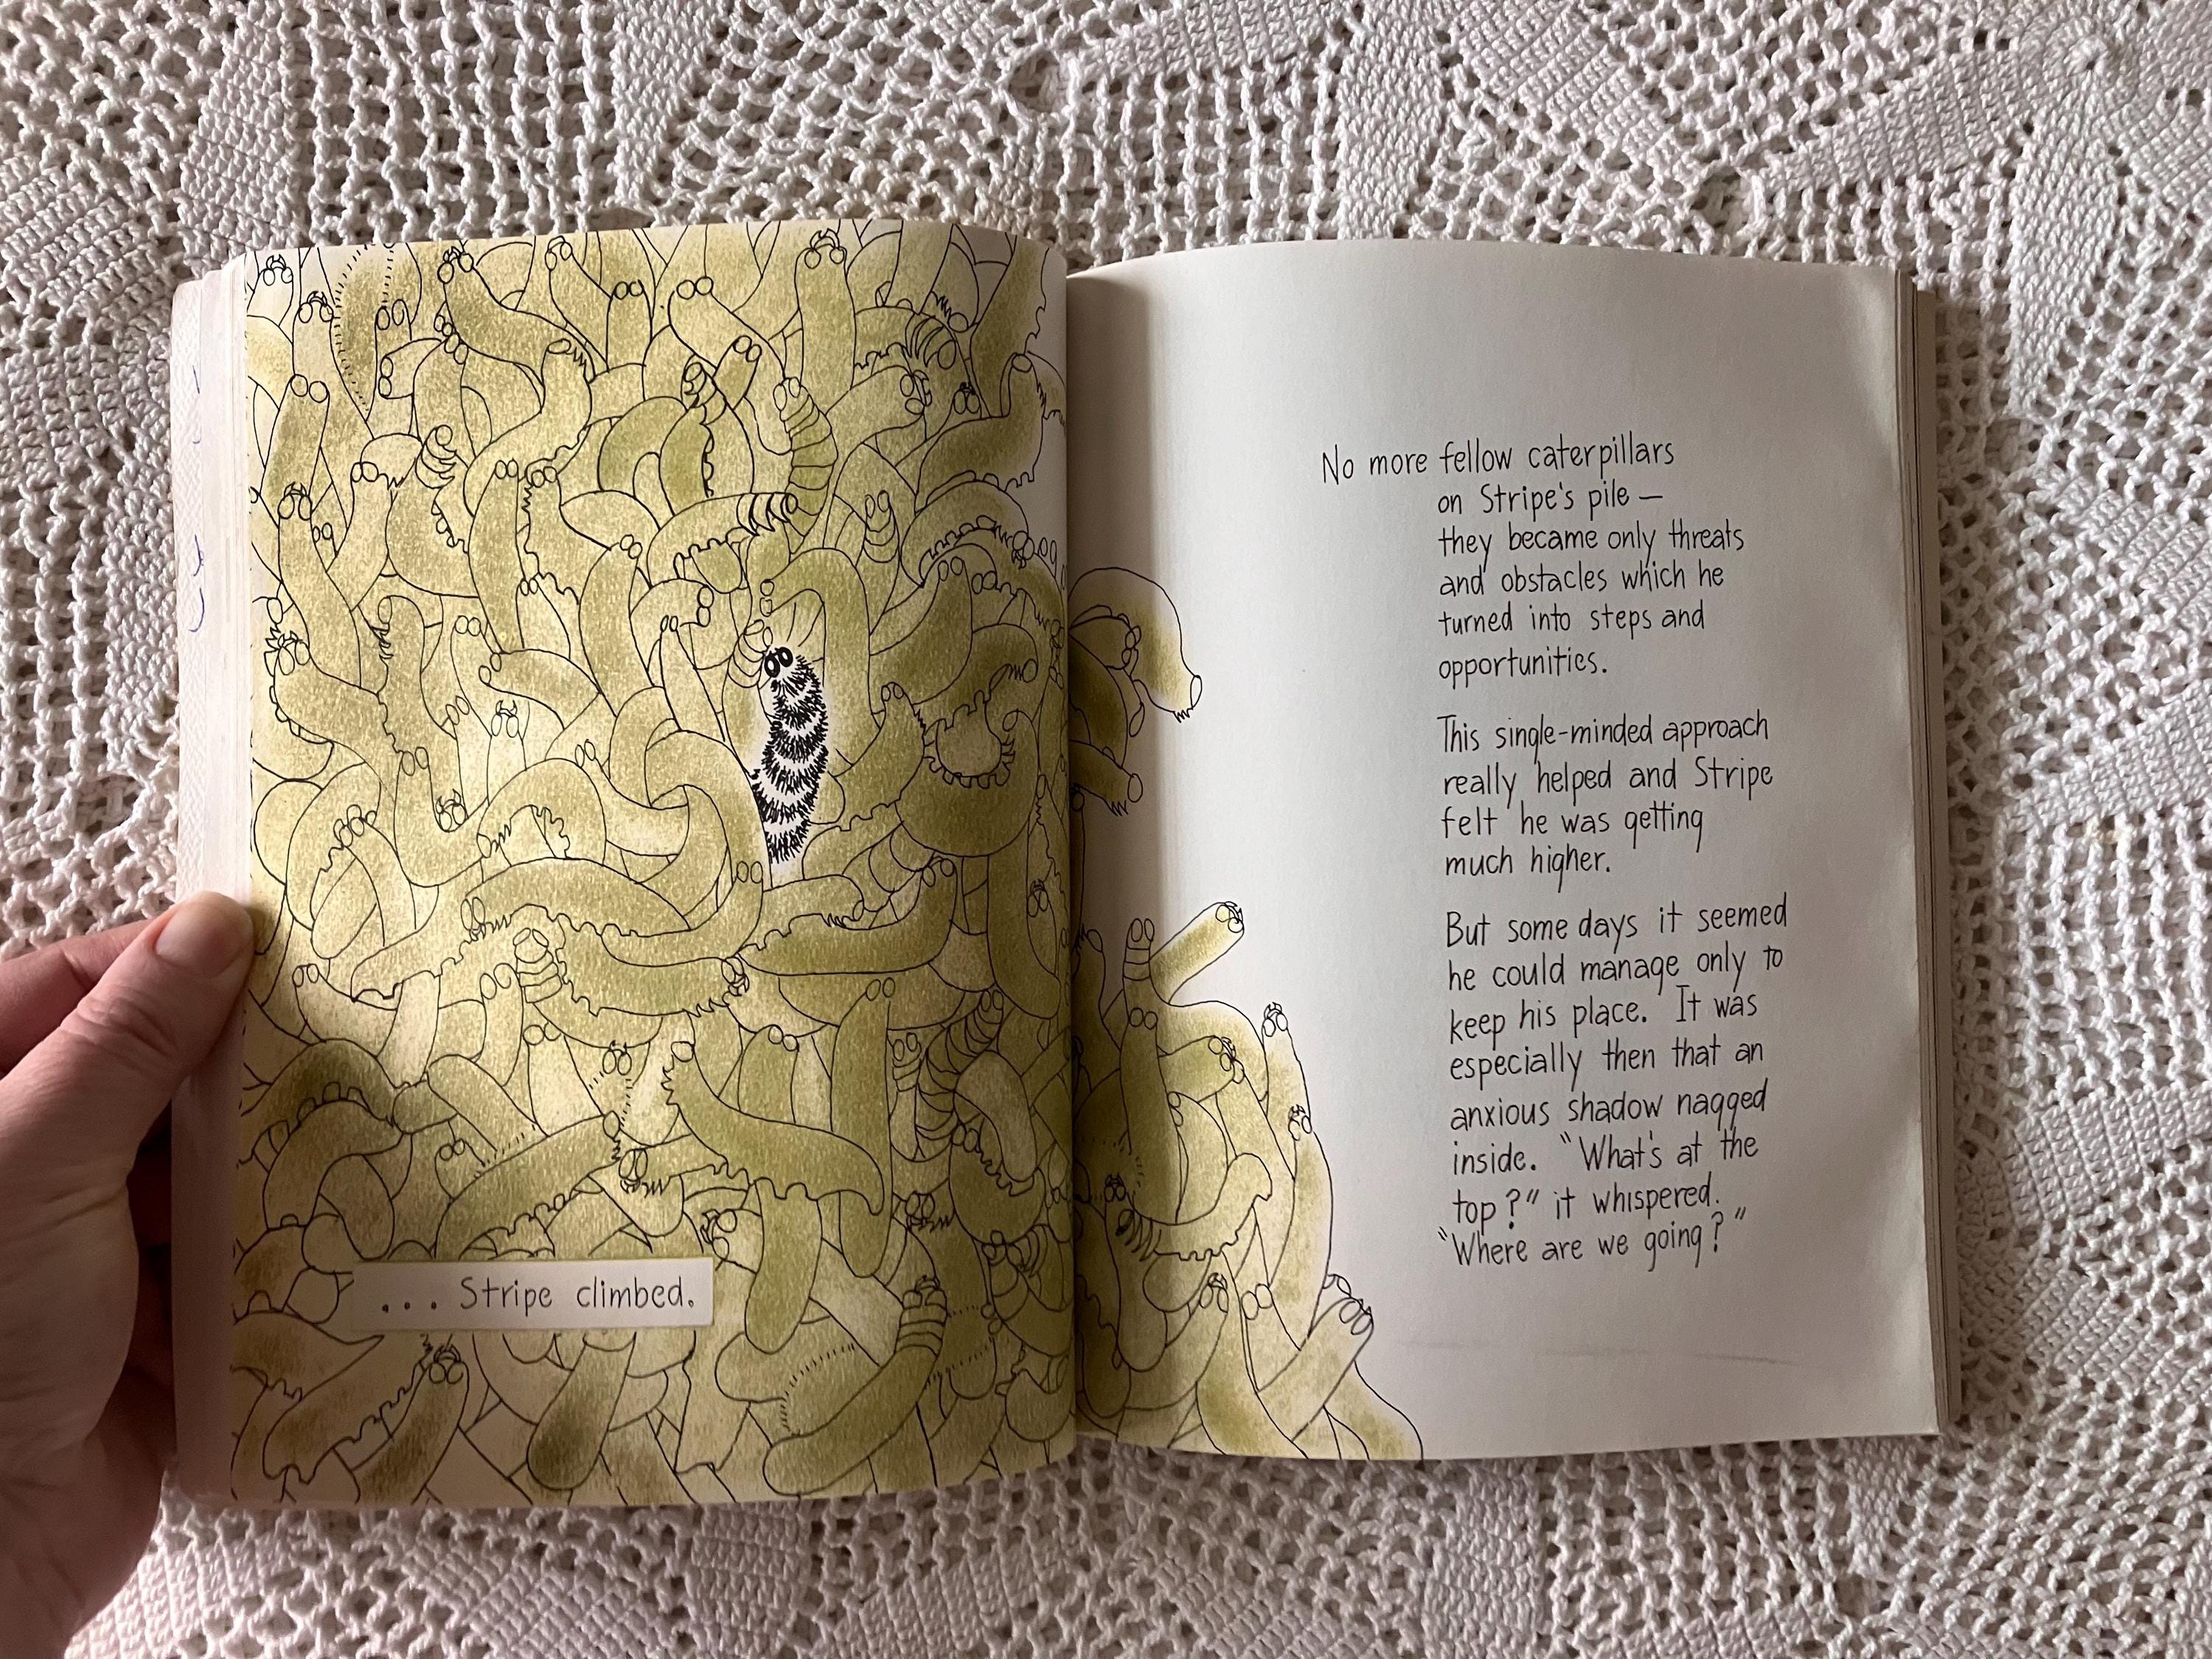 ... Stripe climbed.
No more fellow caterpillars
on Stripe's pile —
they became only threats
and obstacles which he
turned into steps and
opportunities.
This single-minded approach
really helped and Stripe
felt he was getting
much higher.
But some days it seemed
he could manage only to
keep his place. It was
especially then that an
anxious shadow nagged
inside. "What's at the
top?" it whispered.
"Where are we going?"